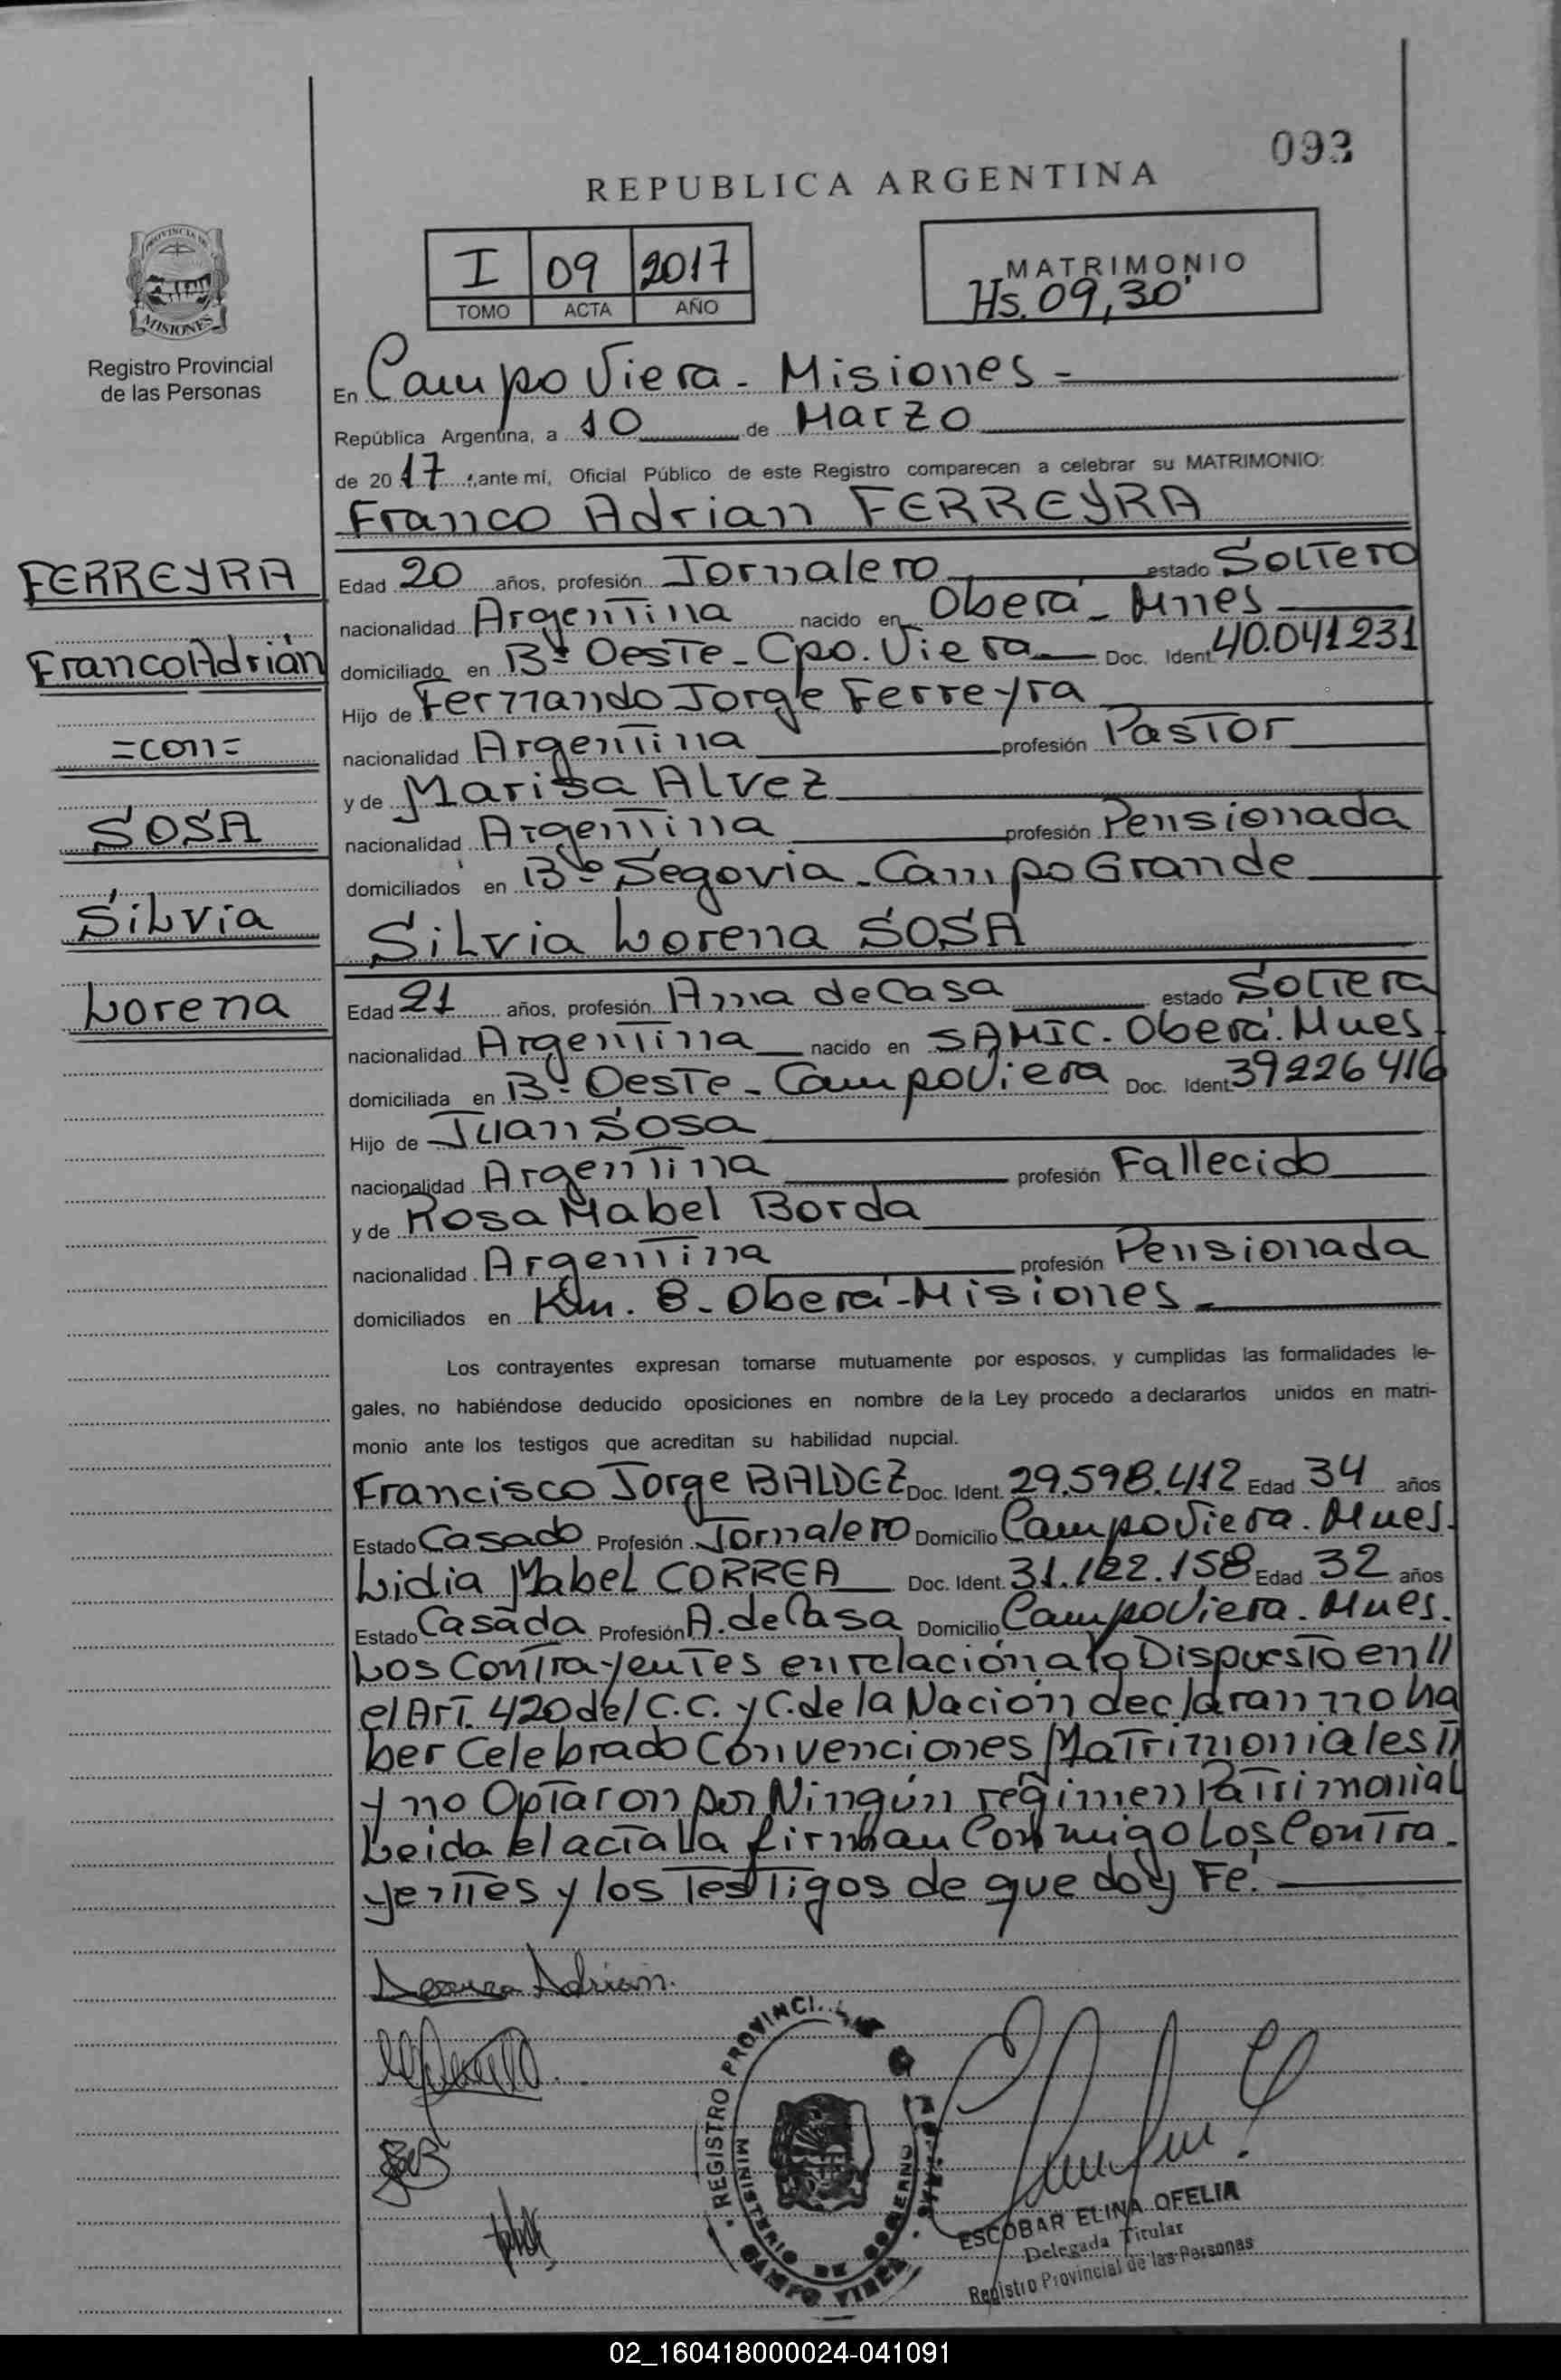 093
REPUBLICA ARGENTINA
PROVINCIA DE
MISIONES
Registro Provincial
de las Personas
I 09 2017
TOMO ACTA AÑO
MATRIMONIO
Hs. 09,30'
En Campo Viera - Misiones -
República Argentina, a 10 de Marzo
de 2017, ante mí, Oficial Público de este Registro comparecen a celebrar su MATRIMONIO:
Franco Adrian FERREYRA
Edad 20 años, profesión Jornalero estado Soltero
nacionalidad Argentina nacido en Oberá - Mnes
domiciliado en Bº Oeste - Cpo. Viera Doc. Ident. 40.041231
Hijo de Fernando Jorge Ferreyra
nacionalidad Argentina profesión Pastor
y de Marisa Alvez
nacionalidad Argentina profesión Pensionada
domiciliados en Bº Segovia - Campo Grande
FERREYRA
Franco Adrián
=con=
SOSA
Silvia
Lorena
Silvia Lorena SOSA
Edad 21 años, profesión Ama de Casa estado Soltera
nacionalidad Argentina nacido en SAMIC. Oberá. Mnes.
domiciliada en Bº Oeste - Campo Viera Doc. Ident. 39226416
Hijo de Juan Sosa
nacionalidad Argentina profesión Fallecido
y de Rosa Mabel Borda
nacionalidad Argentina profesión Pensionada
domiciliados en Km. 8 - Oberá - Misiones
Los contrayentes expresan tomarse mutuamente por esposos, y cumplidas las formalidades le-
gales, no habiéndose deducido oposiciones en nombre de la Ley procedo a declararlos unidos en matri-
monio ante los testigos que acreditan su habilidad nupcial.
Francisco Jorge BALDEZ Doc. Ident. 29.598.412 Edad 34 años
Estado Casado Profesión Jornalero Domicilio Campo Viera. Mnes.
Lidia Mabel CORREA Doc. Ident. 31.122.158 Edad 32 años
Estado Casada Profesión A. de Casa Domicilio Campo Viera. Mnes.
Los Contrayentes en relación a lo Dispuesto en //
el Art. 420 del C.C. y C. de la Nación declaran no ha
ber Celebrado Convenciones Matrimoniales //
y no Optaron por Ningún regimen Patrimonial
Leida el acta la firman Conmigo Los Contra-
yentes y los Testigos de que doy Fé.
Adrian.
REGISTRO PROVINCIAL
MINISTERIO DE GOBIERNO
CAMPO VIERA
ESCOBAR ELINA OFELIA
Delegada Titular
Registro Provincial de las Personas
02_160418000024-041091